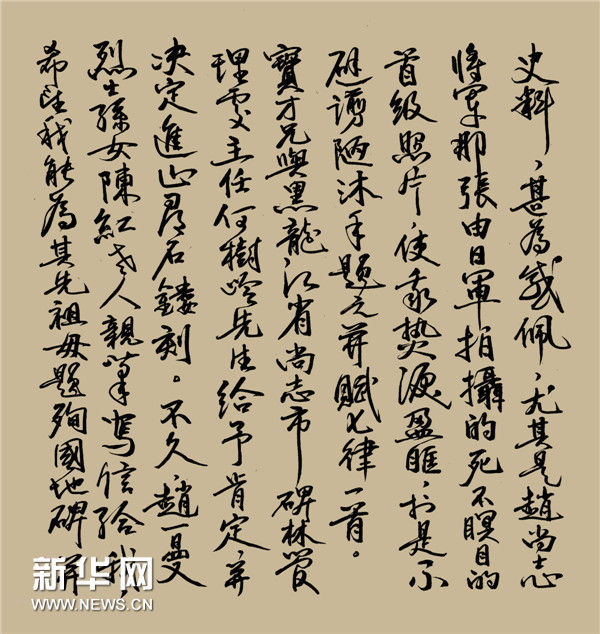 史料，甚為感佩，尤其是趙尚志
將軍那張由日軍拍攝的死不瞑目的
首級照片，使我熱淚盈眶，於是不
避譾陋沐手題之并賦七律一首。
寶才兄與黑龍江省尚志市碑林管
理處主任何樹嶺先生給予肯定，并
決定進山尋石鏤刻。不久，趙一曼
烈士孫女陳紅老人親筆寫信給我
希望我能為其先祖母題殉國地碑
新华网
WWW.NEWS.CN